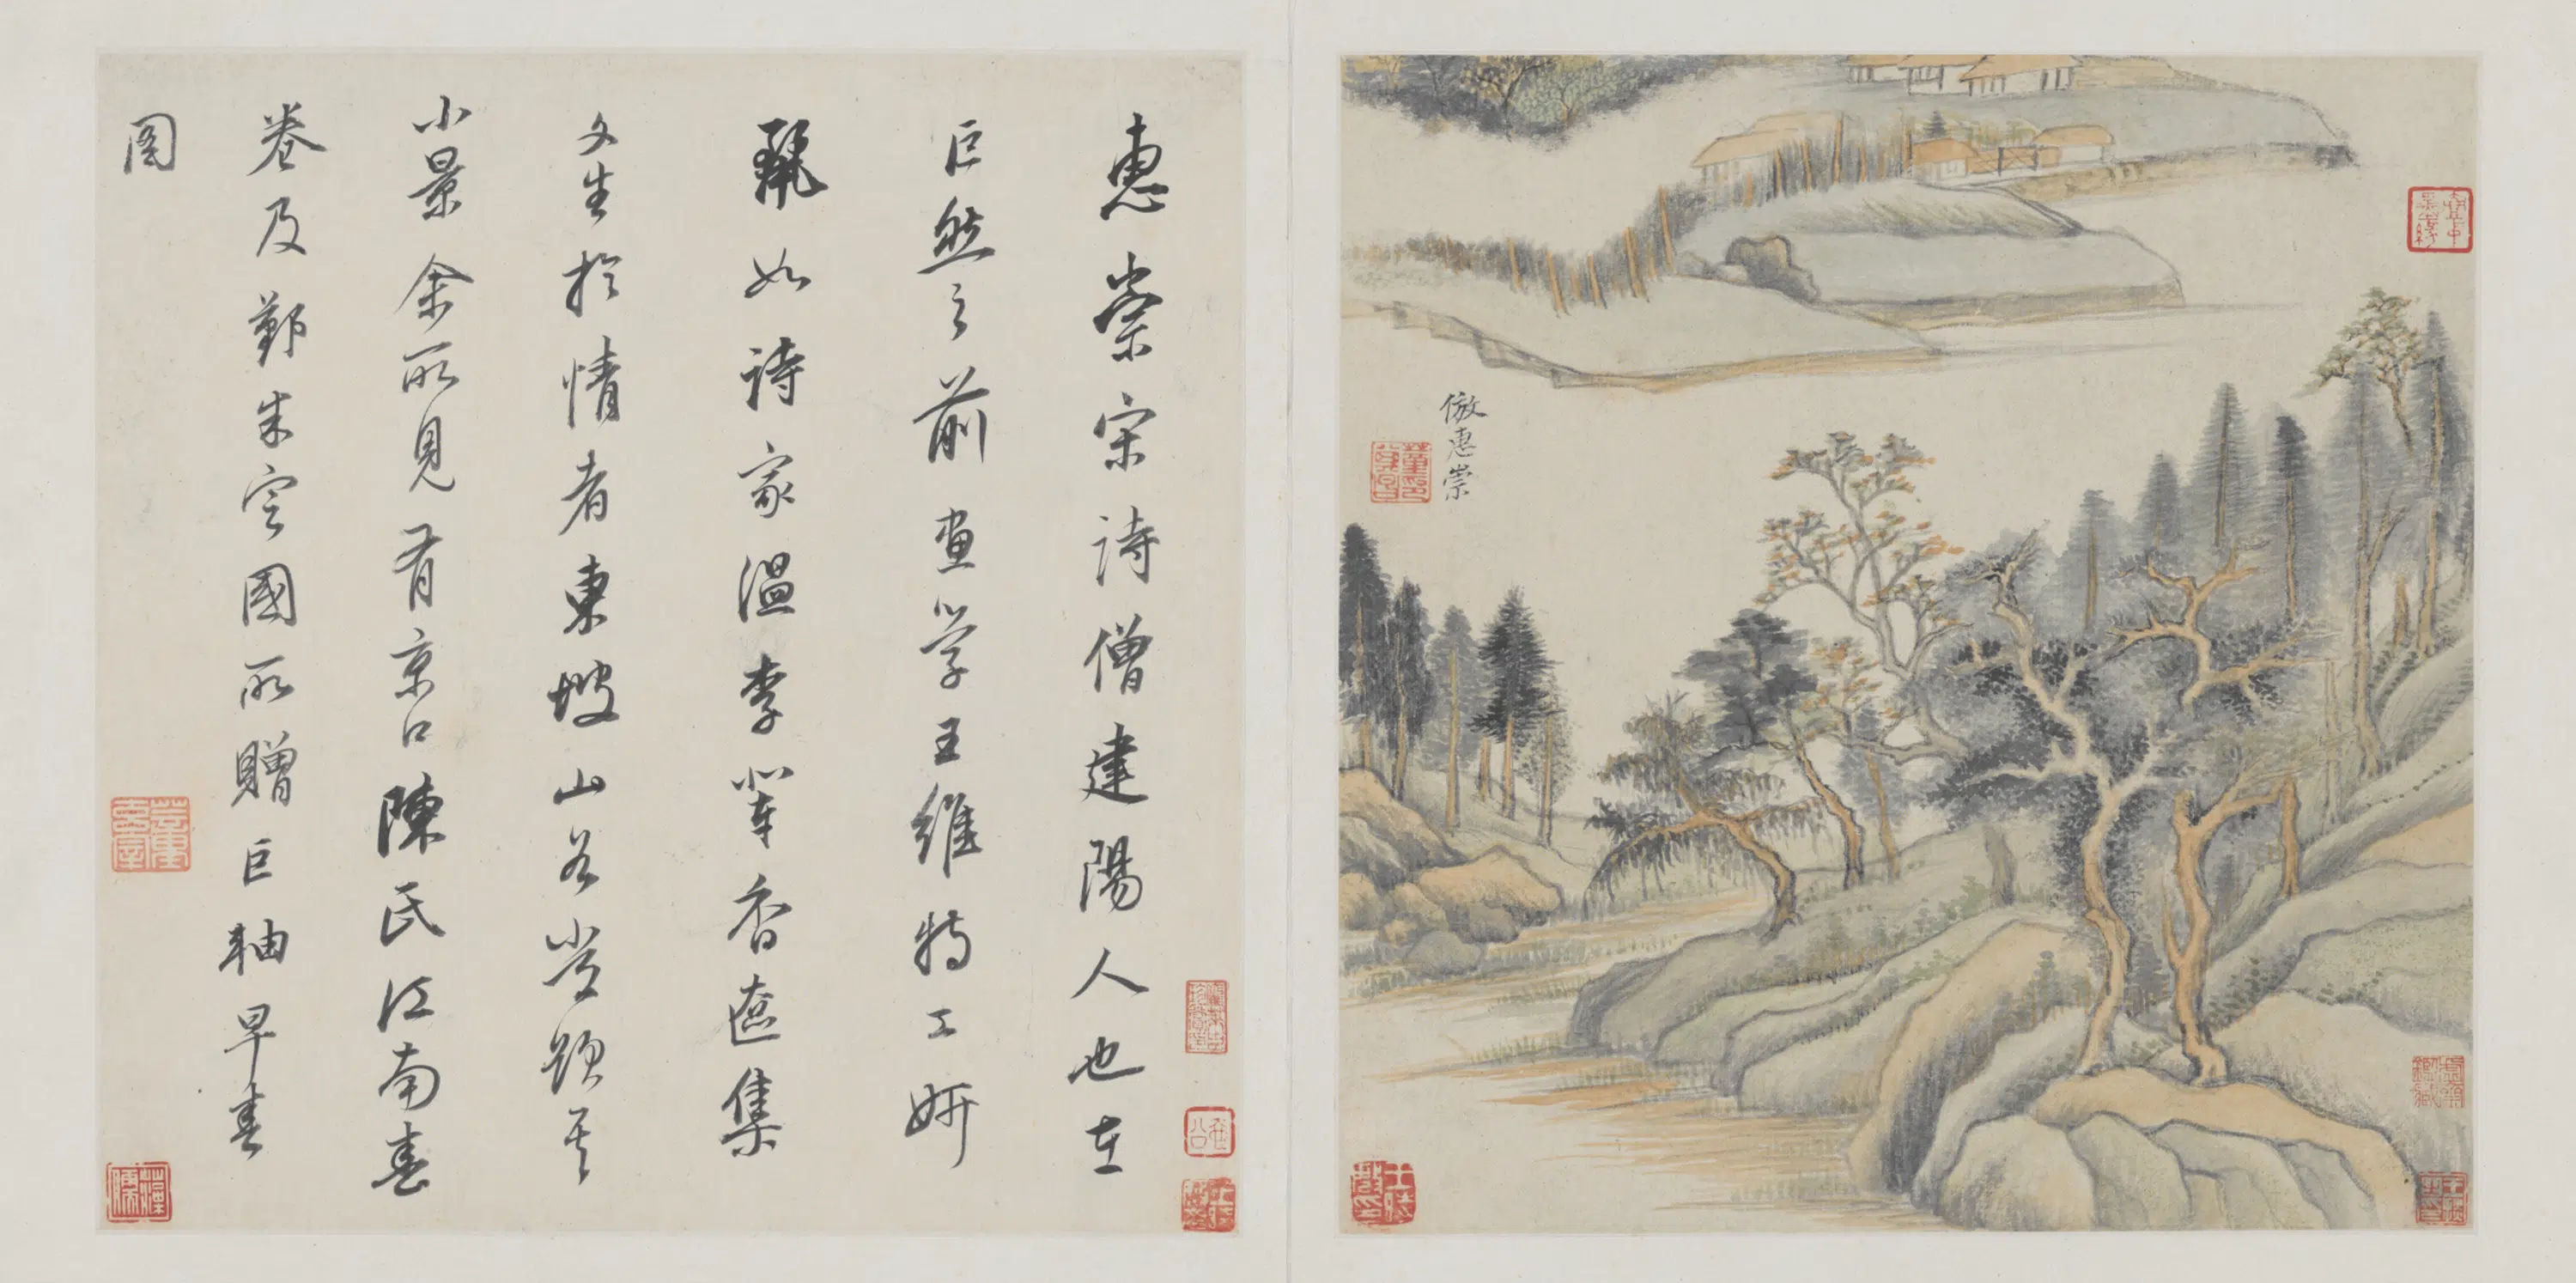 倣惠崇
惠崇宋詩僧建陽人也在
巨然之前畫學王維特工妍
麗如詩家溫李輩香奩集
文生於情者東坡山谷嘗題其
小景余所見有京口陳氏江南春
卷及鄞朱定國所贈巨軸早春
圖